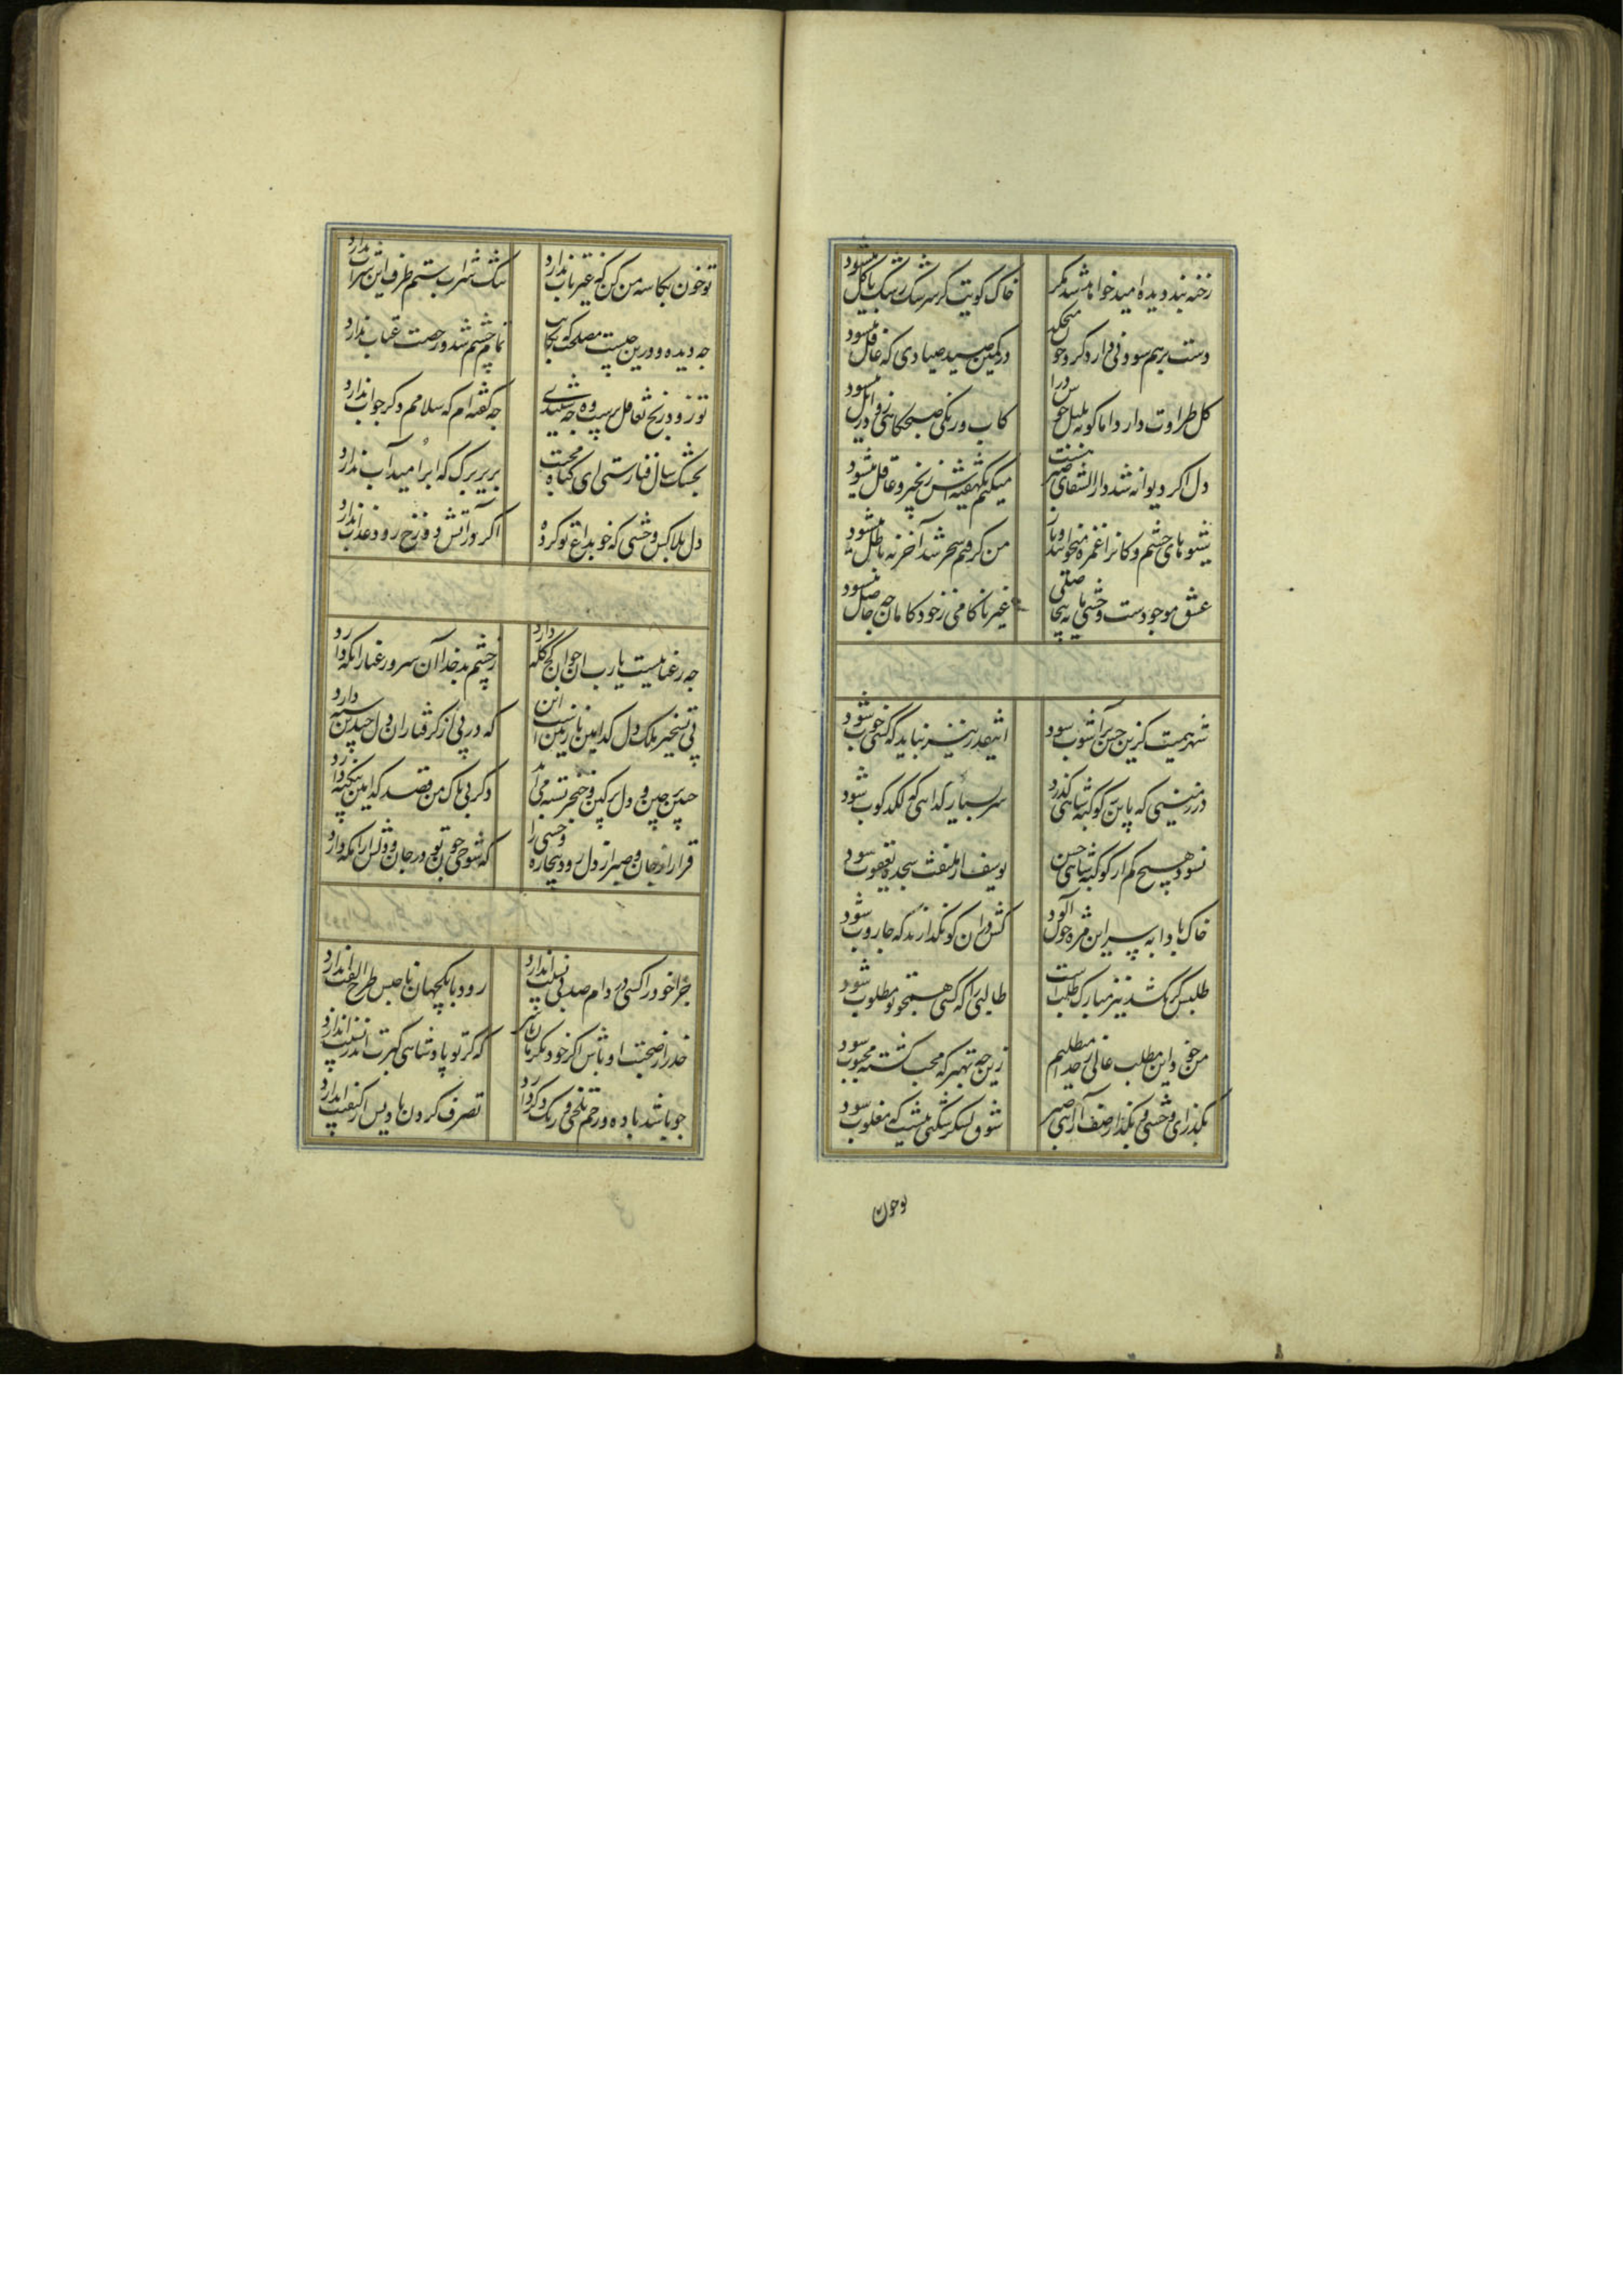 رخنه بند دیده امید خواهد شد مگر خاک کویت کز سر شک رشک ما گل میشود
دست بر هم سودنی دارد کز و خون میچکد در کمین صید صیادی که غافل میشود
گل طراوت دارد اما گو به بلبل خوش درا کاب و رنگی صبحگاهی زود زایل میشود
دل اگر دیوانه شد دارالشفای صبر هست میکنم یکهفته اش زنجیر و عاقل میشود
شیوه های چشم و کانرا غمزه میخوانند و ناز من گرفتم سحر شد آخر نه باطل میشود
عشق موجودست وحشی یا نه بیجاصلی غیر ناکامی ز خود کامان چه حاصل میشود
شهر بیمست کزین حسن پر آشوب شود اینقدر نیز نباید که کسی خوب شود
در زمینی که باین کوکبه شاهی گذرد سر بسیار گدا هی که لگدکوب شود
نشود هیچ کم از کوکبه شاهی حسن یوسف ار ملتفت سجده یعقوب شود
خاک بادا به سر این مژه خون آلود کش در آن کو نگذارند که جاروب شود
طلبش گر بکشد نیز مبارک طلبیست طالبی را که کسی همچو تو مطلوب شود
من خود این مطلب عالی ز خدا میطلبم زین چه بهتر که محب کشته محبوب شود
بگذر ای وحشی و بگذار صف آرائی صبر شوق لشکرشکنی نیست که مغلوب شود
تو خون
تو خون بکاسه من کن که غیر تاب ندارد تنک شراب ستم ظرف این شراب ندارد
چه دیده و درین چیست مصلحت که نگاهت تمام چشم شد و رخصت عتاب ندارد
تو زود رنج تغافل پرست وه چه شنیدی چه گفته ام که سلامم دگر جواب ندارد
بخشک سال فنا رستی ای گیاه محبت بریز برگ که ابر امید آب ندارد
دل بلاکش وحشی که خو بداغ تو کرده اگر در آتش دوزخ رود عذاب ندارد
چه رعناییست یارب آن جوان کج کله دارد ز چشم بد خدا آن سرو رعنا را نگه دارد
پی تسخیر ملک دل کدامین نازنین است این که در پی از گرفتاران دل چندین سپه دارد
جبین پر چین و دل پر کین و خنجر بسته می آید دگر بی باک من قصد کدامین بیگنه دارد
قرار از جان و صبر از دل رود بیچاره وحشی را که شوخی چون تو در جان و دلش آرامگه دارد
چرا خود را کسی در دام صد بی نسبت اندازد رود با یکجهان ناجنس طرح الفت اندازد
حذر از صحبت اوباش اگر خود فکر ما باشد که گر تو پادشاهی کبرت از نسبت اندازد
چو باشد باده در خم تلخی و رنگ دگر دارد تصرف کردن ناویس از کیفیت اندازد